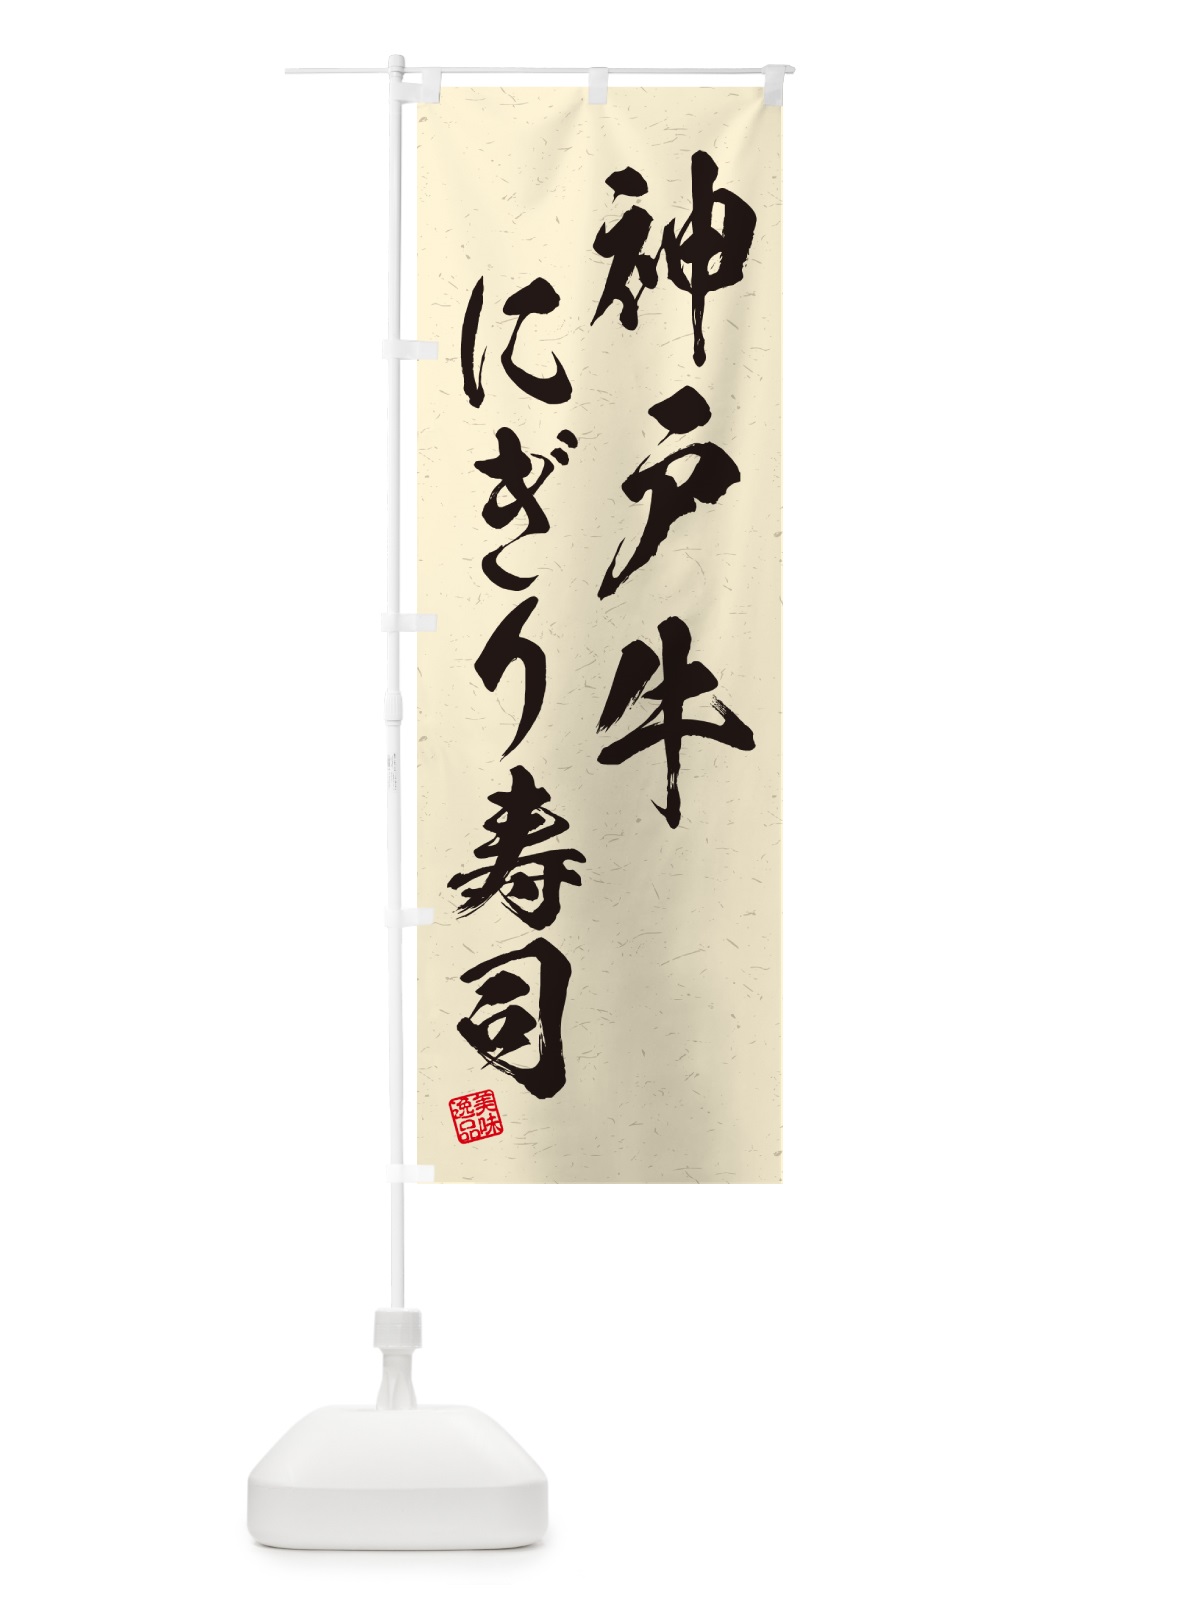 神戸牛
にぎり寿司
美味
逸品